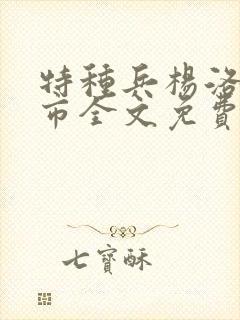 特種兵楊洛
市全文免費
七寶酥